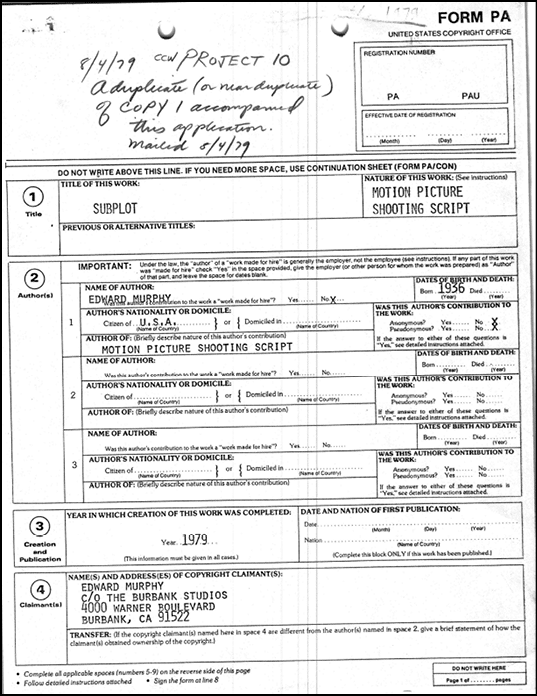 1979
FORM PA
UNITED STATES COPYRIGHT OFFICE
8/4/79 CCW/PROJECT 10
A duplicate (or near duplicate)
of COPY 1 accompanied
this application.
Mailed 8/4/79
REGISTRATION NUMBER
PA PAU
EFFECTIVE DATE OF REGISTRATION
(Month) (Day) (Year)
DO NOT WRITE ABOVE THIS LINE. IF YOU NEED MORE SPACE, USE CONTINUATION SHEET (FORM PA/CON)
1
Title
TITLE OF THIS WORK:
SUBPLOT
NATURE OF THIS WORK: (See instructions)
MOTION PICTURE
SHOOTING SCRIPT
PREVIOUS OR ALTERNATIVE TITLES:
2
Author(s)
IMPORTANT: Under the law, the "author" of a "work made for hire" is generally the employer, not the employee (see instructions). If any part of this work
was "made for hire" check "Yes" in the space provided, give the employer (or other person for whom the work was prepared) as "Author"
of that part, and leave the space for dates blank.
1
NAME OF AUTHOR:
EDWARD MURPHY
Was this author's contribution to the work a "work made for hire"? Yes...... No X...
DATES OF BIRTH AND DEATH:
Born 1936 Died ........
(Year) (Year)
AUTHOR'S NATIONALITY OR DOMICILE:
Citizen of ..U.S.A........ } or { Domiciled in ..............
(Name of Country) (Name of Country)
WAS THIS AUTHOR'S CONTRIBUTION TO
THE WORK:
Anonymous? Yes...... No X
Pseudonymous? Yes...... No X
AUTHOR OF: (Briefly describe nature of this author's contribution)
MOTION PICTURE SHOOTING SCRIPT
If the answer to either of these questions is
"Yes," see detailed instructions attached.
2
NAME OF AUTHOR:
Was this author's contribution to the work a "work made for hire"? Yes...... No......
DATES OF BIRTH AND DEATH:
Born ........ Died ........
(Year) (Year)
AUTHOR'S NATIONALITY OR DOMICILE:
Citizen of .............. } or { Domiciled in ..............
(Name of Country) (Name of Country)
WAS THIS AUTHOR'S CONTRIBUTION TO
THE WORK:
Anonymous? Yes...... No......
Pseudonymous? Yes...... No......
AUTHOR OF: (Briefly describe nature of this author's contribution)
If the answer to either of these questions is
"Yes," see detailed instructions attached.
3
NAME OF AUTHOR:
Was this author's contribution to the work a "work made for hire"? Yes...... No......
DATES OF BIRTH AND DEATH:
Born ........ Died ........
(Year) (Year)
AUTHOR'S NATIONALITY OR DOMICILE:
Citizen of .............. } or { Domiciled in ..............
(Name of Country) (Name of Country)
WAS THIS AUTHOR'S CONTRIBUTION TO
THE WORK:
Anonymous? Yes...... No......
Pseudonymous? Yes...... No......
AUTHOR OF: (Briefly describe nature of this author's contribution)
If the answer to either of these questions is
"Yes," see detailed instructions attached.
3
Creation
and
Publication
YEAR IN WHICH CREATION OF THIS WORK WAS COMPLETED:
Year..1979......
(This information must be given in all cases.)
DATE AND NATION OF FIRST PUBLICATION:
Date..............
(Month) (Day) (Year)
Nation ..............
(Name of Country)
(Complete this block ONLY if this work has been published.)
4
Claimant(s)
NAME(S) AND ADDRESS(ES) OF COPYRIGHT CLAIMANT(S):
EDWARD MURPHY
C/O THE BURBANK STUDIOS
4000 WARNER BOULEVARD
BURBANK, CA 91522
TRANSFER: (If the copyright claimant(s) named here in space 4 are different from the author(s) named in space 2, give a brief statement of how the
claimant(s) obtained ownership of the copyright.)
• Complete all applicable spaces (numbers 5-9) on the reverse side of this page
• Follow detailed instructions attached • Sign the form at line 8
DO NOT WRITE HERE
Page 1 of ........ pages